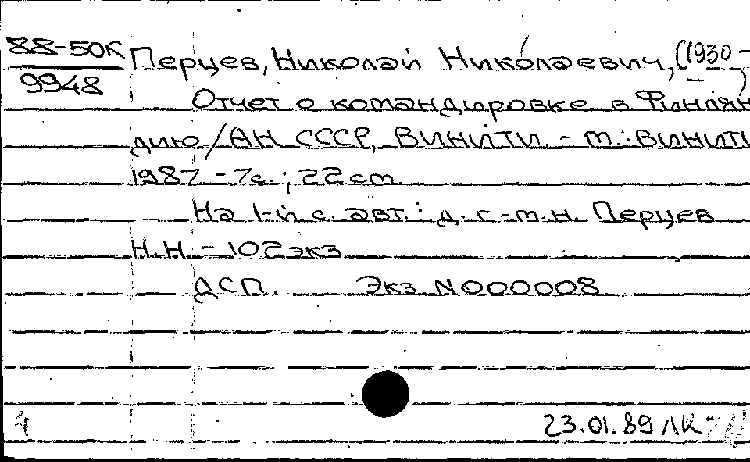 88-50К Перцев, Николай Николаевич, (1930-
9948 )
Отчет о командировке в Финлян
дию/АН СССР, ВИНИТИ. - М.: ВИНИТИ
1987. - 7с.; 22 см
На 1-й с. авт.: д. г.-м. н. Перцев
Н.Н. - 102 экз
ДСП. Экз N000008
23.01.89 ЛК